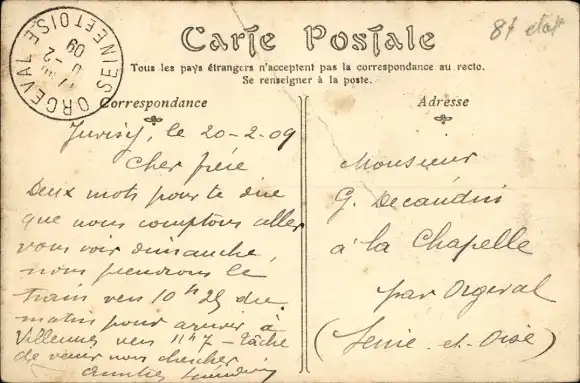 8f etat
Carte Postale
Tous les pays étrangers n'acceptent pas la correspondance au recto.
Se renseigner à la poste.
ORGEVAL SEINE ET OISE
2 - 09
Correspondance
Juvisy, le 20-2-09
Cher frère
Deux mots pour te dire
que nous comptons aller
vous voir dimanche,
nous prendrons le
train vers 10 h 25 du
matin pour arriver à
Villennes vers 11h7 - tâche
de venir nous chercher
Adresse
Monsieur
G. Decaudin
à la Chapelle
par Orgeval
(Seine-et-Oise)